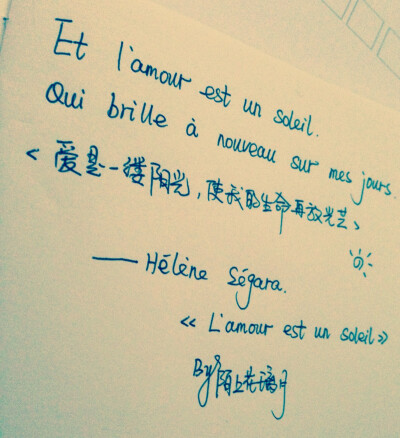 Et l'amour est un soleil.
Qui brille à nouveau sur mes jours.
<爱是一缕阳光,使我的生命再放光芒>
—— Hélène Ségara.
<< L'amour est un soleil >>
By 陌上花